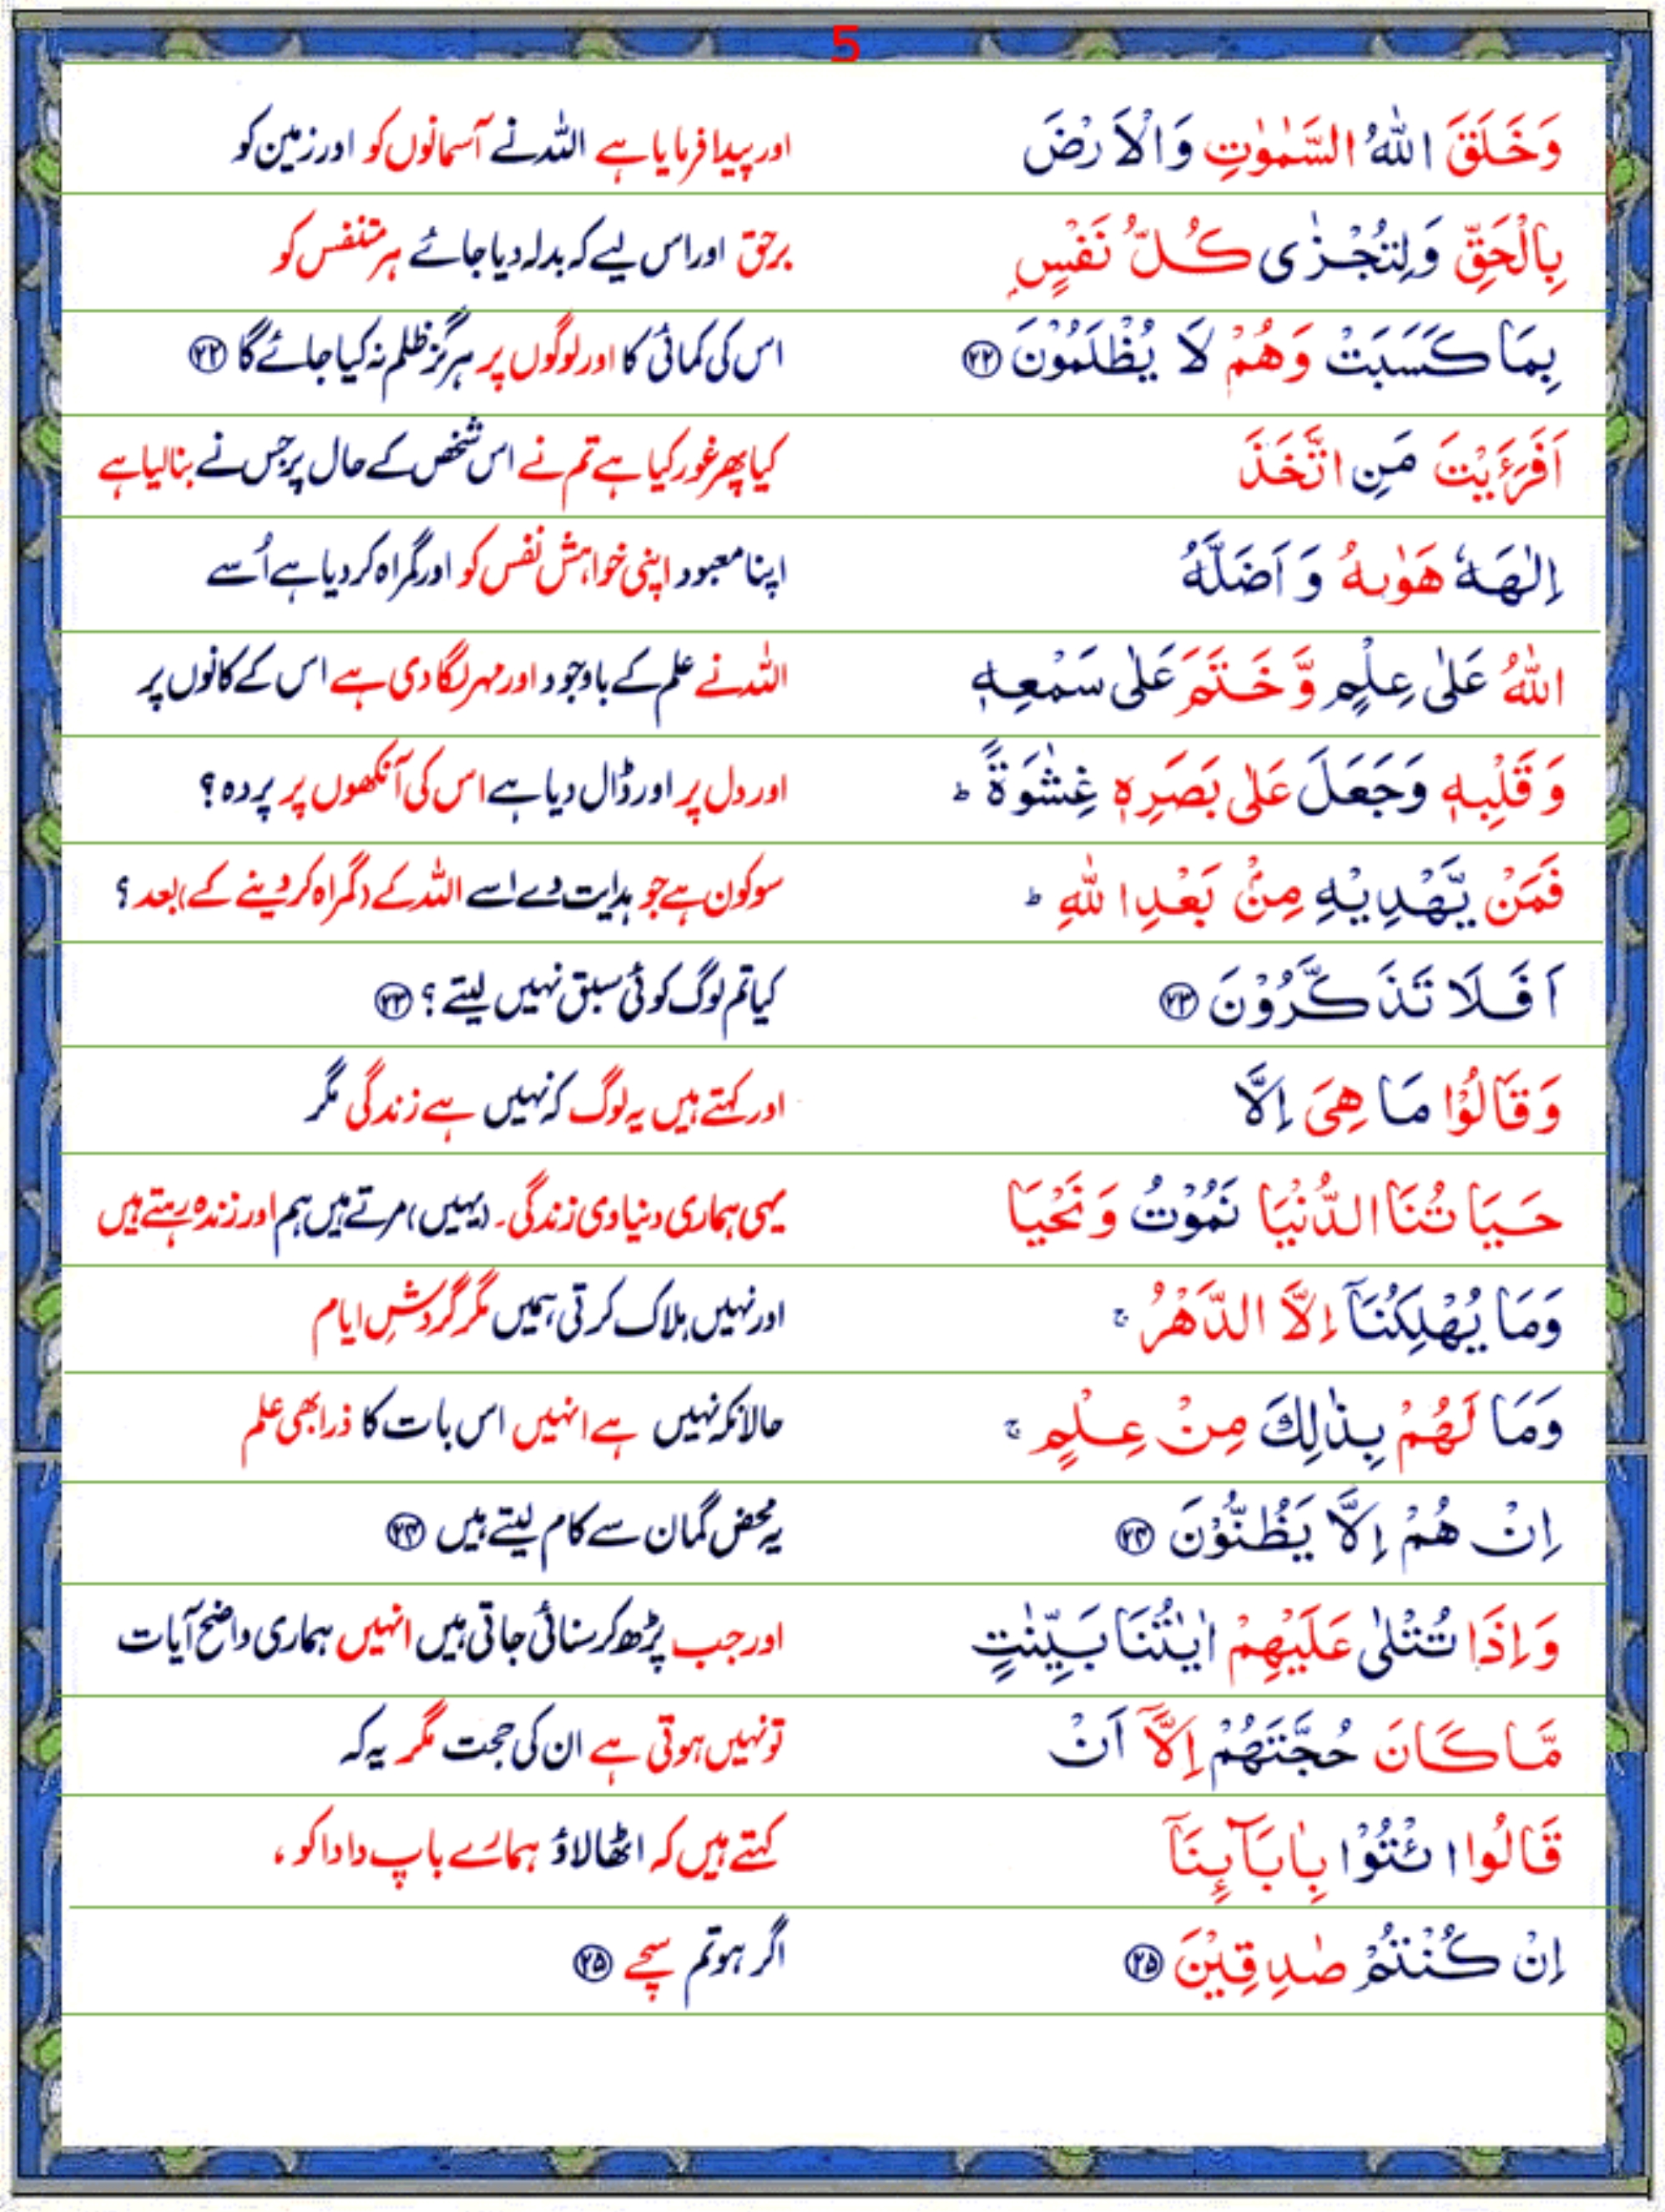 5
وَخَلَقَ اللّٰهُ السَّمٰوٰتِ وَالْاَرْضَ اور پیدا فرمایا ہے اللہ نے آسمانوں کو اور زمین کو
بِالْحَقِّ وَلِتُجْزٰى كُلُّ نَفْسٍۢ برحق اور اس لیے کہ بدلہ دیا جائے ہر متنفس کو
بِمَا كَسَبَتْ وَهُمْ لَا يُظْلَمُوْنَ ﴿۲۲﴾ اس کی کمائی کا اور لوگوں پر ہرگز ظلم نہ کیا جائے گا ﴿۲۲﴾
اَفَرَءَيْتَ مَنِ اتَّخَذَ کیا پھر غور کیا ہے تم نے اس شخص کے حال پر جس نے بنا لیا ہے
اِلٰهَهٗ هَوٰىهُ وَاَضَلَّهُ اپنا معبود اپنی خواہش نفس کو اور گمراہ کر دیا ہے اُسے
اللّٰهُ عَلٰى عِلْمٍ وَّخَتَمَ عَلٰى سَمْعِهٖ اللہ نے علم کے باوجود اور مہر لگا دی ہے اس کے کانوں پر
وَقَلْبِهٖ وَجَعَلَ عَلٰى بَصَرِهٖ غِشٰوَةً ؕ اور دل پر اور ڈال دیا ہے اس کی آنکھوں پر پردہ؟
فَمَنْ يَّهْدِيْهِ مِنْۢ بَعْدِ اللّٰهِ ؕ سو کون ہے جو ہدایت دے اسے اللہ کے (گمراہ کر دینے کے) بعد؟
اَفَلَا تَذَكَّرُوْنَ ﴿۲۳﴾ کیا تم لوگ کوئی سبق نہیں لیتے؟ ﴿۲۳﴾
وَقَالُوْا مَا هِىَ اِلَّا اور کہتے ہیں یہ لوگ کہ نہیں ہے زندگی مگر
حَيَاتُنَا الدُّنْيَا نَمُوْتُ وَنَحْيَا یہی ہماری دنیاوی زندگی۔ (یہیں) مرتے ہیں ہم اور زندہ رہتے ہیں
وَمَا يُهْلِكُنَاۤ اِلَّا الدَّهْرُ ۚ اور نہیں ہلاک کرتی ہمیں مگر گردشِ ایام
وَمَا لَهُمْ بِذٰلِكَ مِنْ عِلْمٍ ۚ حالانکہ نہیں ہے انہیں اس بات کا ذرا بھی علم
اِنْ هُمْ اِلَّا يَظُنُّوْنَ ﴿۲۴﴾ یہ محض گمان سے کام لیتے ہیں ﴿۲۴﴾
وَاِذَا تُتْلٰى عَلَيْهِمْ اٰيٰتُنَا بَيِّنٰتٍ اور جب پڑھ کر سنائی جاتی ہیں انہیں ہماری واضح آیات
مَّا كَانَ حُجَّتَهُمْ اِلَّاۤ اَنْ تو نہیں ہوتی ہے ان کی حجت مگر یہ کہ
قَالُوا ائْتُوْا بِاٰبَآئِنَاۤ کہتے ہیں کہ اٹھا لاؤ ہمارے باپ دادا کو،
اِنْ كُنْتُمْ صٰدِقِيْنَ ﴿۲۵﴾ اگر ہو تم سچے ﴿۲۵﴾